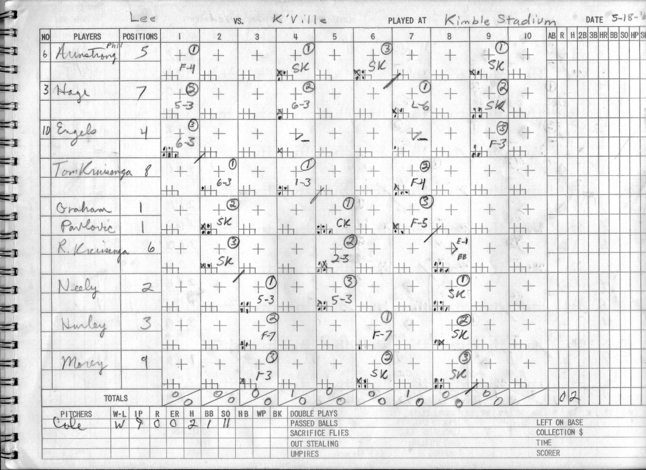 Lee VS. K'Ville PLAYED AT Kimble Stadium DATE 5-18-
NO PLAYERS POSITIONS 1 2 3 4 5 6 7 8 9 10 AB R H 2B 3B HR BB SO HP
6 Armstrong Phil 5 1 F-4 1 SK 3 SK 1 SK
3 Hage 7 2 5-3 2 6-3 1 L-6 2 SK
10 Engels 4 3 6-3 3 F-3
Tom Kruizenga 8 1 6-3 1-3 2 F-4
Graham 1 2 1 3
Pavlovic 1 SK CK F-5
R. Kruizenga 6 3 SK 2 2-3 E-1 BB
Neely 2 1 5-3 3 5-3 1 SK
Hurley 3 2 F-7 1 F-7 2 SK
Morey 9 3 F3 2 SK 3 SK
TOTALS 0 0 0 0 0 0 0 1 0 0 0 0 1 0 0 0 0 0 0 2
PITCHERS W-L IP R ER H BB SO HB WP BK DOUBLE PLAYS
Cole W 9 0 0 2 1 11 PASSED BALLS LEFT ON BASE
SACRIFICE FLIES COLLECTION $
OUT STEALING TIME
UMPIRES SCORER